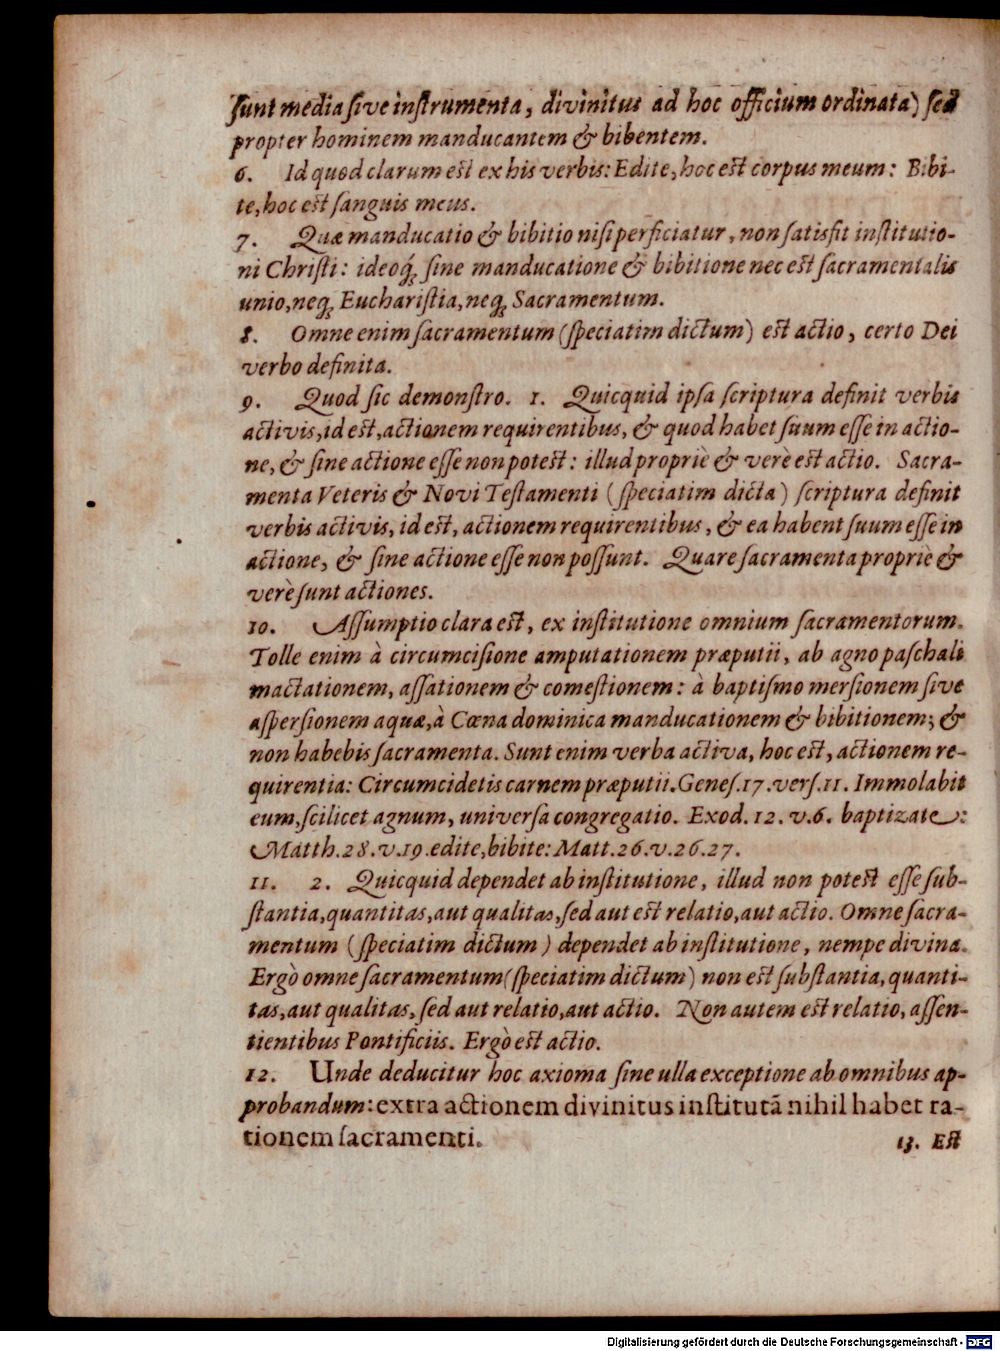 sunt media sive instrumenta, divinitus ad hoc officium ordinata) sed
propter hominem manducantem & bibentem.
6. Id quod clarum est ex his verbis: Edite, hoc est corpus meum: Bibi-
te, hoc est sanguis meus.
7. Quæ manducatio & bibitio nisi perficiatur, non satisfit institutio-
ni Christi: ideoq́; sine manducatione & bibitione nec est sacramentalis
unio, neq; Eucharistia, neq; Sacramentum.
8. Omne enim sacramentum (speciatim dictum) est actio, certo Dei
verbo definita.
9. Quod sic demonstro. 1. Quicquid ipsa scriptura definit verbis
activis, id est, actionem requirentibus, & quod habet suum esse in actio-
ne, & sine actione esse non potest: illud propriè & verè est actio. Sacra-
menta Veteris & Novi Testamenti (speciatim dicta) scriptura definit
verbis activis, id est, actionem requirentibus, & ea habent suum esse in
actione, & sine actione esse non possunt. Quare sacramenta propriè &
verè sunt actiones.
10. Assumptio clara est, ex institutione omnium sacramentorum.
Tolle enim à circumcisione amputationem præputii, ab agno paschali
mactationem, assationem & comestionem: à baptismo mersionem sive
aspersionem aquæ, à Cœna dominica manducationem & bibitionem; &
non habebis sacramenta. Sunt enim verba activa, hoc est, actionem re-
quirentia: Circumcidetis carnem præputii. Genes. 17. vers. 11. Immolabit
eum, scilicet agnum, universa congregatio. Exod. 12. v. 6. baptizate:
Matth. 28. v. 19. edite, bibite: Matt. 26. v. 26. 27.
11. 2. Quicquid dependet ab institutione, illud non potest esse sub-
stantia, quantitas, aut qualitas, sed aut est relatio, aut actio. Omne sacra-
mentum (speciatim dictum) dependet ab institutione, nempe divina.
Ergò omne sacramentum (speciatim dictum) non est substantia, quanti-
tas, aut qualitas, sed aut relatio, aut actio. Non autem est relatio, assen-
tientibus Pontificiis. Ergò est actio.
12. Unde deducitur hoc axioma sine ulla exceptione ab omnibus ap-
probandum: extra actionem divinitus institutā nihil habet ra-
tionem sacramenti.
13. Est
Digitalisierung gefördert durch die Deutsche Forschungsgemeinschaft - DFG